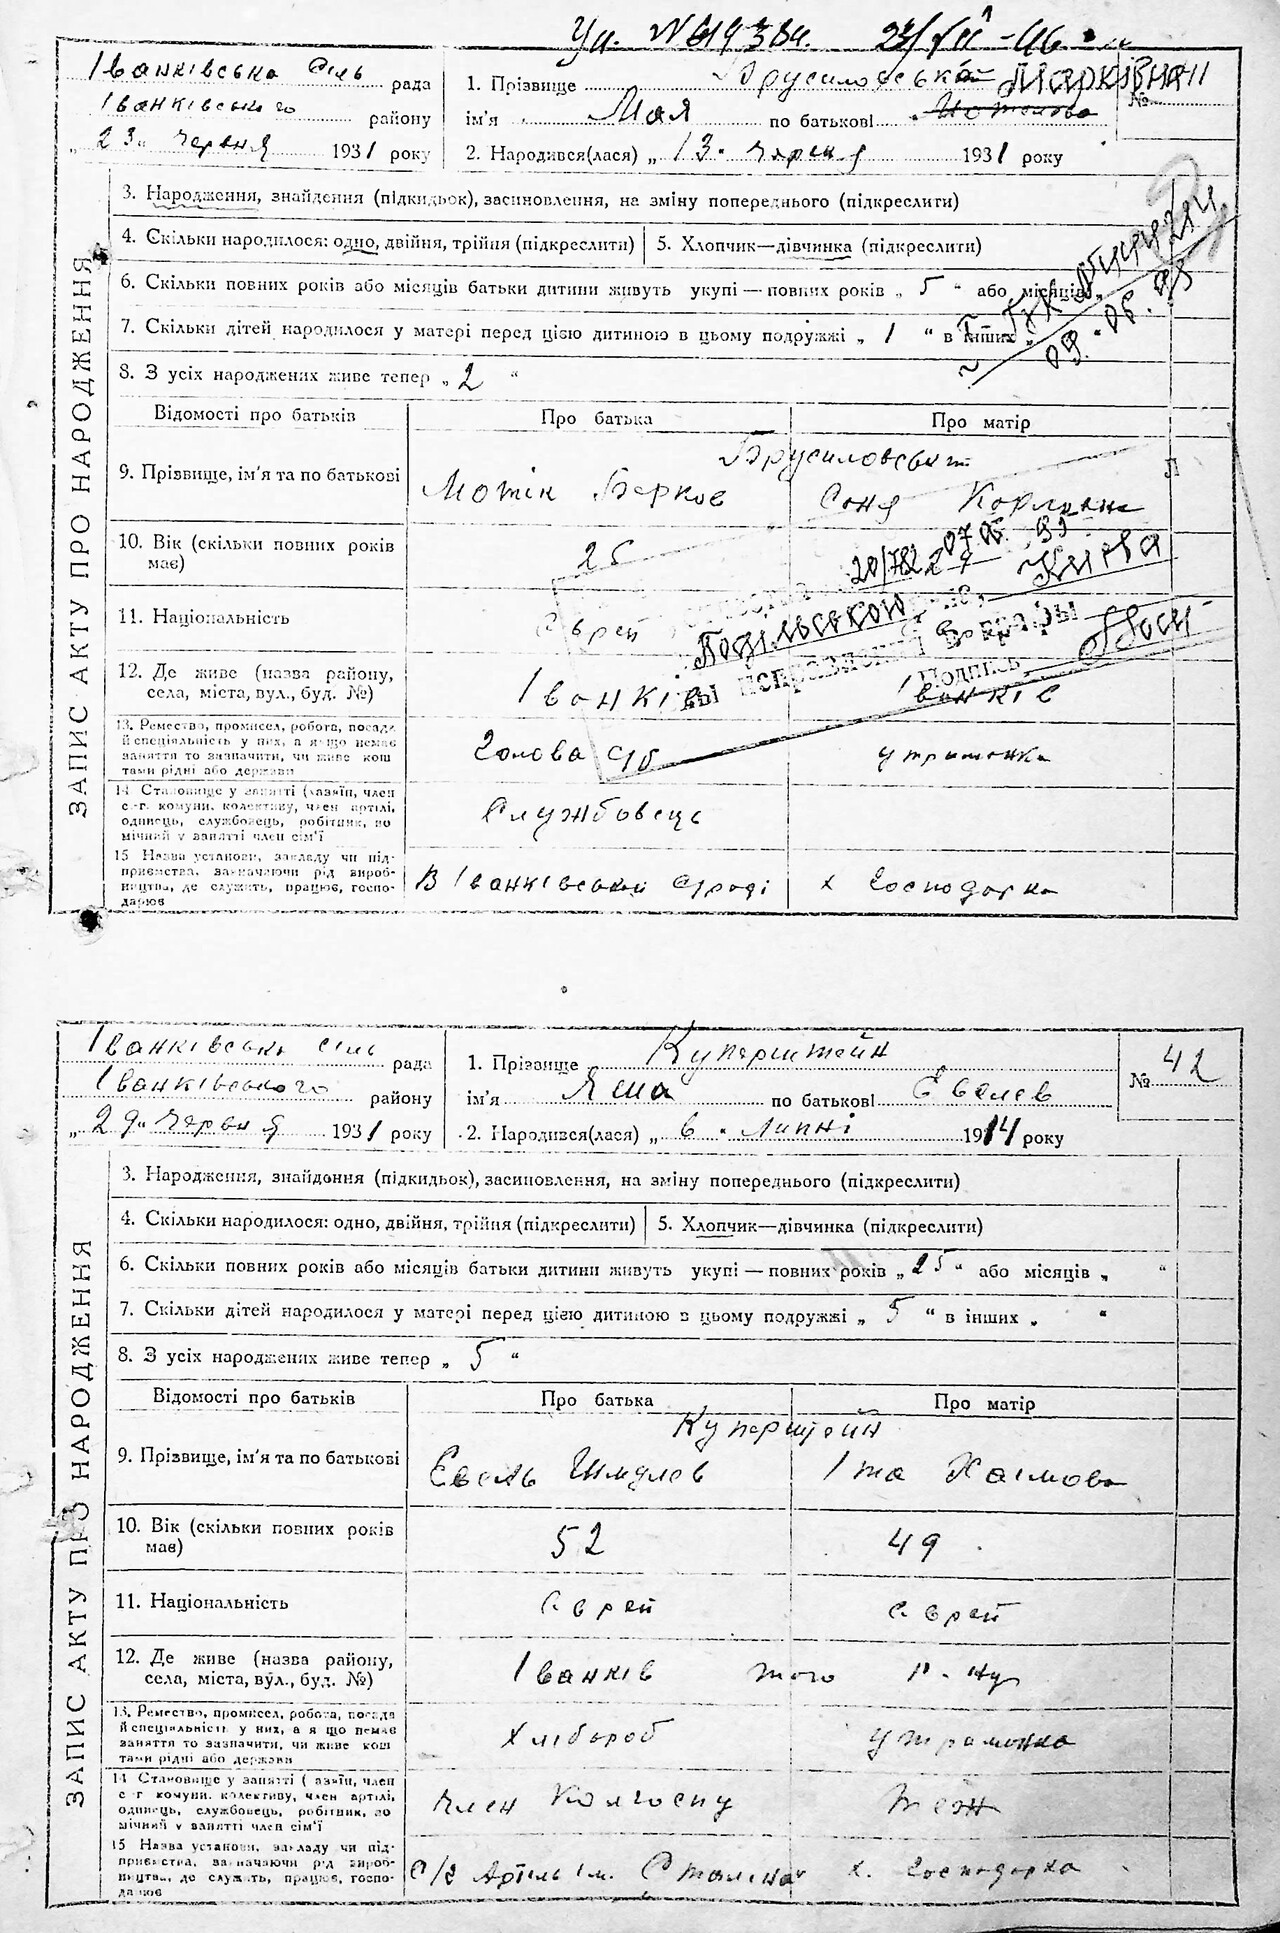 Іванківська Сіль рада
Іванківського району
„23“ Червня 1931 року
1. Прізвище Брусиловська Марківна
ім'я Мая по батькові Мотелова
№
2. Народився(лася) „13“ Червня 1931 року
3. Народження, знайдення (підкидьок), засиновлення, на зміну попереднього (підкреслити)
4. Скільки народилося: одно, двійня, трійня (підкреслити) 5. Хлопчик—дівчинка (підкреслити)
6. Скільки повних років або місяців батьки дитини живуть укупі—повних років „5“ або місяців „
7. Скільки дітей народилося у матері перед цією дитиною в цьому подружжі „1“ в інших „
09.06.
8. З усіх народжених живе тепер „2“
ЗАПИС АКТУ ПРО НАРОДЖЕННЯ
Відомості про батьків Про батька Про матір
Брусиловські
9. Прізвище, ім'я та по батькові Мотік Берков Соня
10. Вік (скільки повних років має) 26
Київа
11. Національність Єврей
Подільського
подпись
12. Де живе (назва району, села, міста, вул., буд. №) Іванків Іванків
13. Ремество, промисел, робота, посада й спеціяльність у них, а якщо немає заняття то зазначити, чи живе коштами рідні або держави Голова утриманка
14 Становище у занятті (хазяїн, член с.-г. комуни, колективу, член артілі, одинець, службовець, робітник, помічний у занятті член сім'ї Службовець
15 Назва установи, закладу чи підприємства, зазначаючи рід виробництва, де служить, працює, господарює В Іванківській с/раді х господарка
Іванківська сіль рада
Іванківського району
„29“ Червня 1931 року
1. Прізвище Куперштейн
ім'я Яша по батькові Евелев
№ 42
2. Народився(лася) „6“ Липні 1914 року
3. Народження, знайдення (підкидьок), засиновлення, на зміну попереднього (підкреслити)
4. Скільки народилося: одно, двійня, трійня (підкреслити) 5. Хлопчик—дівчинка (підкреслити)
6. Скільки повних років або місяців батьки дитини живуть укупі—повних років „25“ або місяців „ “
7. Скільки дітей народилося у матері перед цією дитиною в цьому подружжі „5“ в інших „ “
8. З усіх народжених живе тепер „5“
ЗАПИС АКТУ ПРО НАРОДЖЕННЯ
Відомості про батьків Про батька Про матір
Куперштейн
9. Прізвище, ім'я та по батькові Евель Шмулев Іта Хаімова
10. Вік (скільки повних років має) 52 49
11. Національність Єврей єврей
12. Де живе (назва району, села, міста, вул., буд. №) Іванків того р-ну
13. Ремество, промисел, робота, посада й спеціяльність у них, а якщо немає заняття то зазначити, чи живе коштами рідні або держави Хлібороб утриманка
14 Становище у занятті (хазяїн, член с.-г. комуни, колективу, член артілі, одинець, службовець, робітник, помічний у занятті член сім'ї Член Колгоспу теж
15 Назва установи, закладу чи підприємства, зазначаючи рід виробництва, де служить, працює, господарює С/г Артіль ім. Сталіна х. господарка